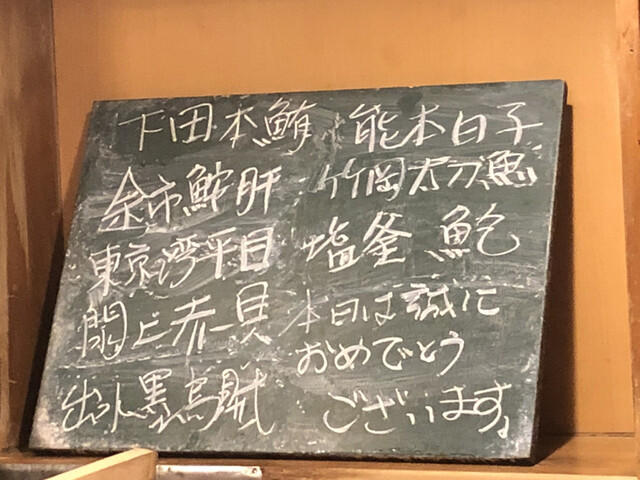 下田本鮪
余市鮟肝
東京湾平目
閖上赤貝
出水墨烏賊
熊本白子
竹岡太刀魚
塩釜 鮑
本日は誠に
おめでとう
ございます。